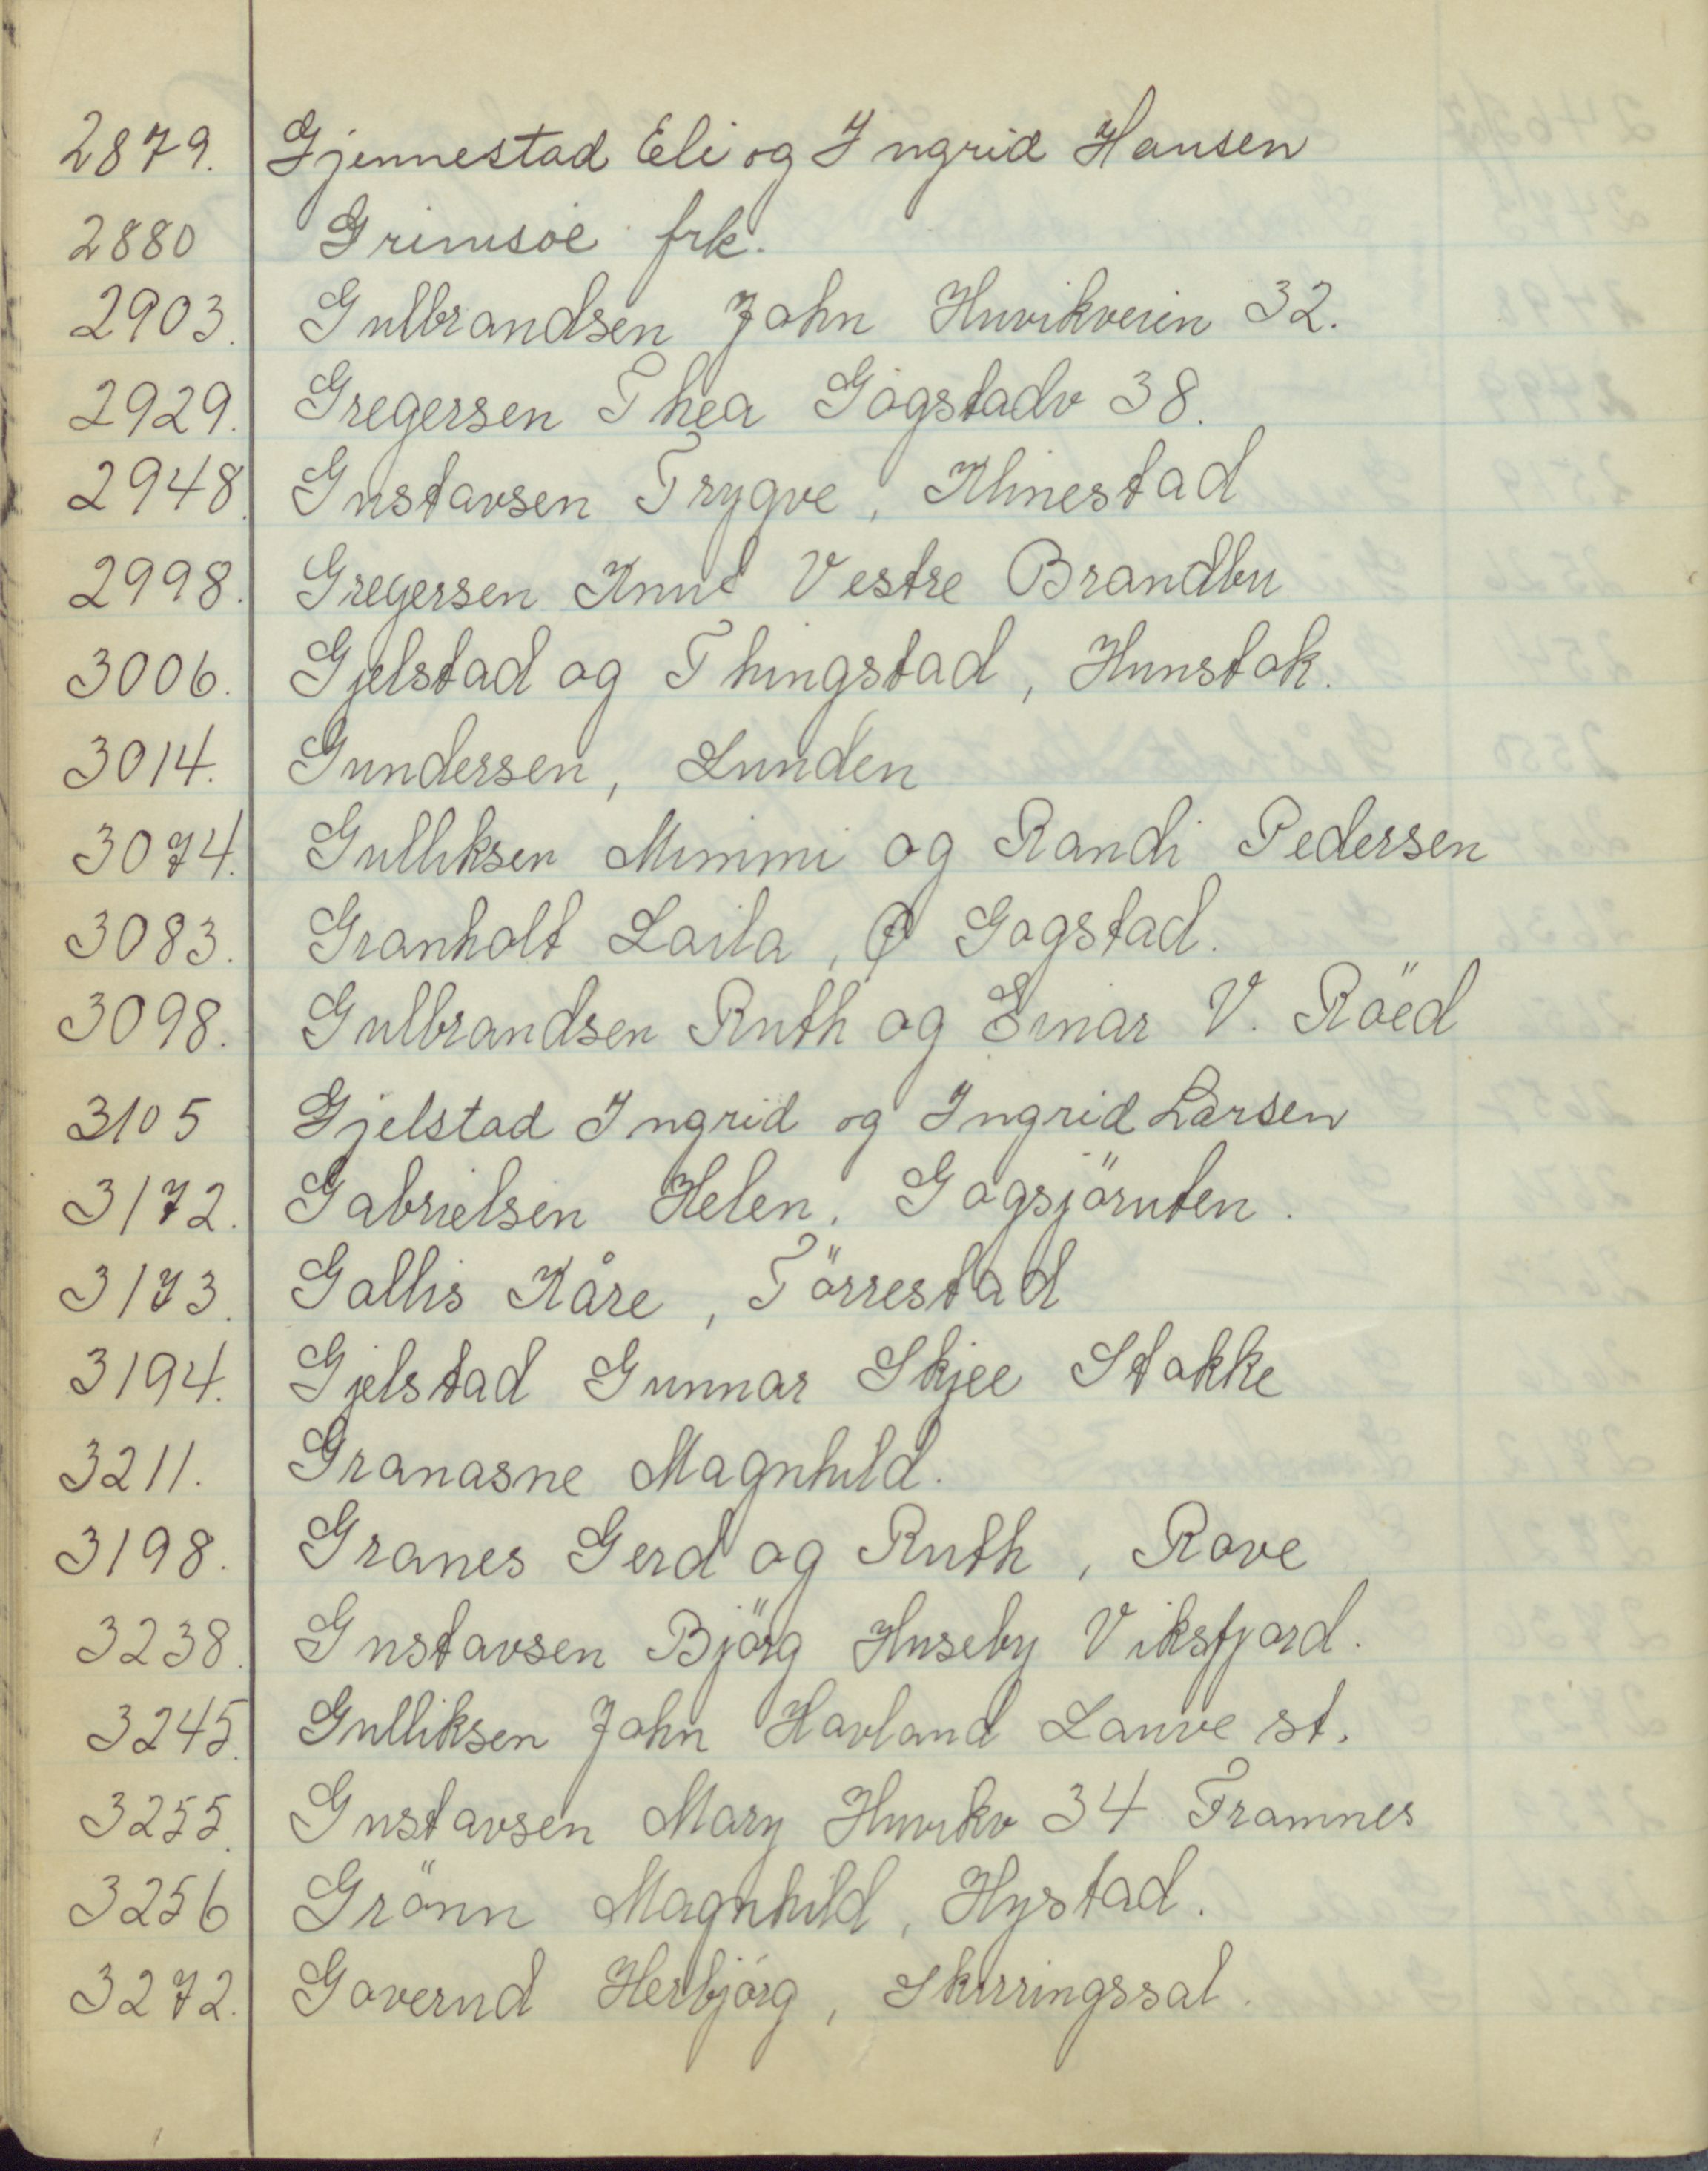 2879. Gjennestad Eli og Ingrid Hansen
2880 Grimsöe frk.
2903. Gulbrandsen John Huvikveien 32.
2929. Gregersen Thea Gogstadv 38.
2948. Gustavsen Trygve, Klinestad
2998. Gregersen Knut Vestre Brandbu
3006. Gjelstad og Thingstad, Hunstok.
3014. Gundersen, Lunden
3074. Gulliksen Mimmi og Randi Pedersen
3083. Granholt Laila, Ø Gogstad.
3098. Gulbrandsen Ruth og Einar V. Röed
3105 Gjelstad Ingrid og Ingrid Larsen
3172. Gabrielsen Helen, Gogsjöruten.
3173. Gallis Kåre, Törrestad
3194. Gjelstad Gunnar Skjee Stokke
3211. Granasne Magnhild.
3198. Granes Gerd og Ruth, Rove
3238. Gustavsen Björg Huseby Viksfjord.
3245. Gulliksen John Havland Lauve st.
3255. Gustavsen Mary Huvikv 34 Framnes
3256 Grönn Magnhild, Hystad.
3272. Governd Herbjörg, Skirringssal.